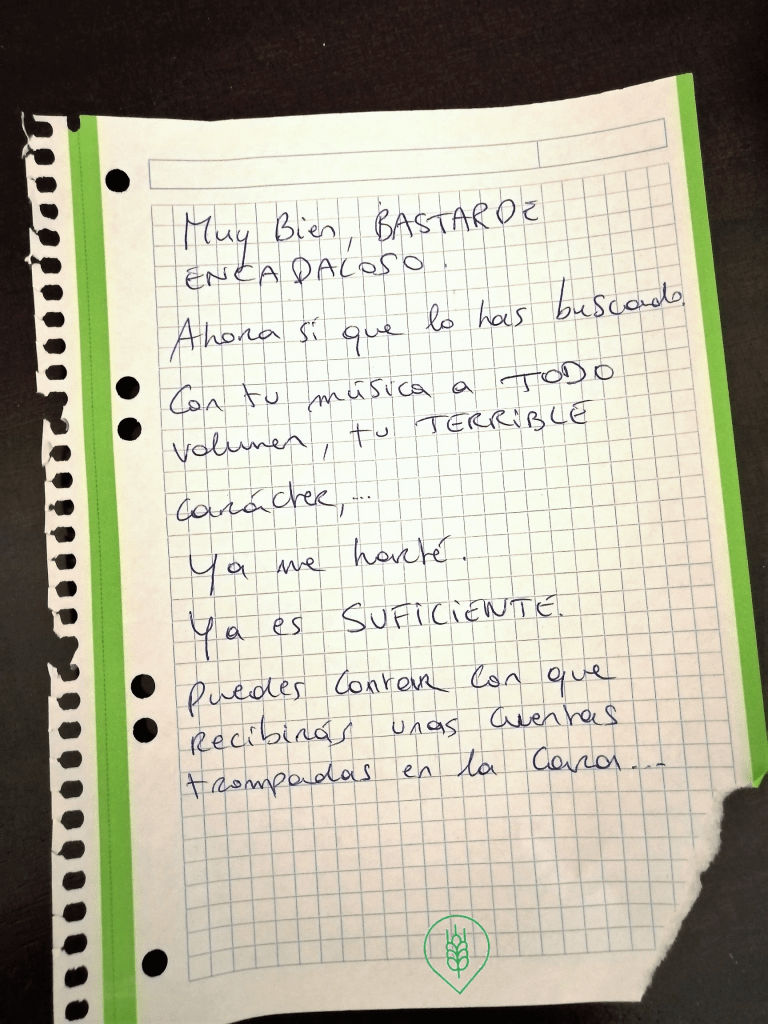 Muy Bien, BASTARDE
ENCADALOSO.
Ahora sí que lo has buscado.
Con tu música a TODO
volumen, tu TERRIBLE
carácter,...
Ya me harté.
Ya es SUFICIENTE.
Puedes contar con que
recibirás unas cuentas
trompadas en la cara...